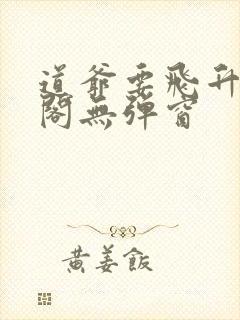 道爺要飛升
閣無彈窗
黃姜飯